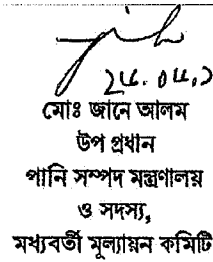 মোঃ জানে আলম
উপ প্রধান
পানি সম্পদ মন্ত্রণালয়
ও সদস্য,
মধ্যবর্তী মূল্যায়ন কমিটি